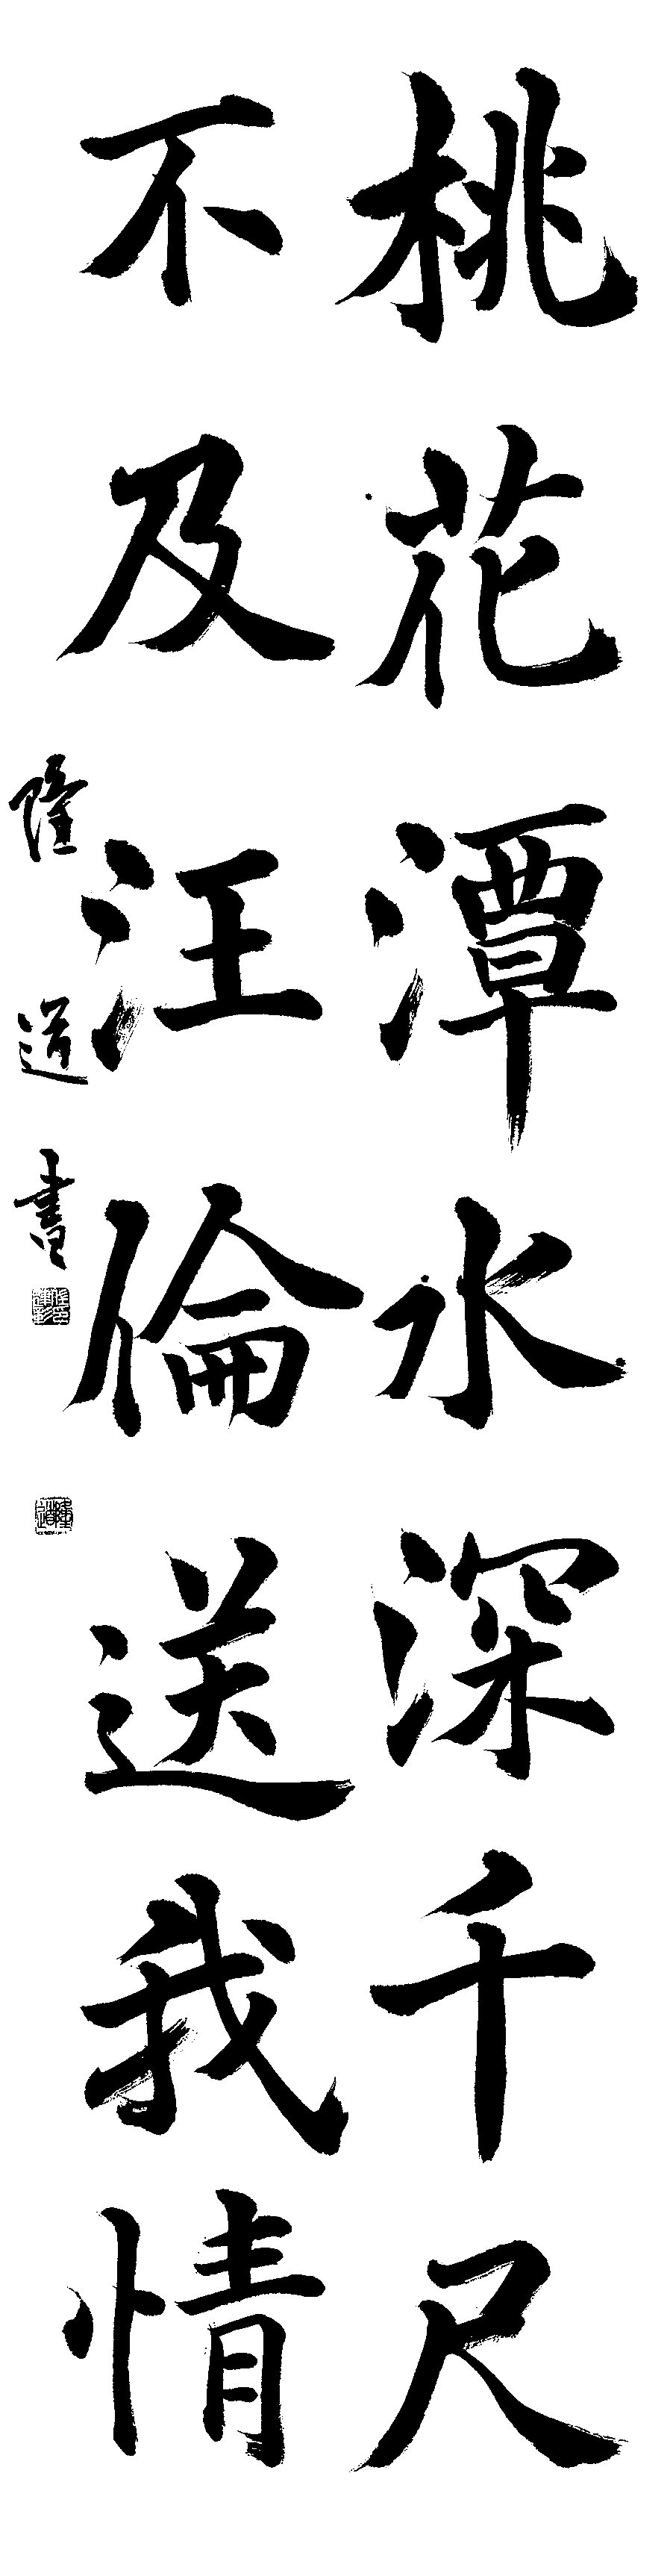 桃花潭水深千尺
不及汪倫送我情
隆道書